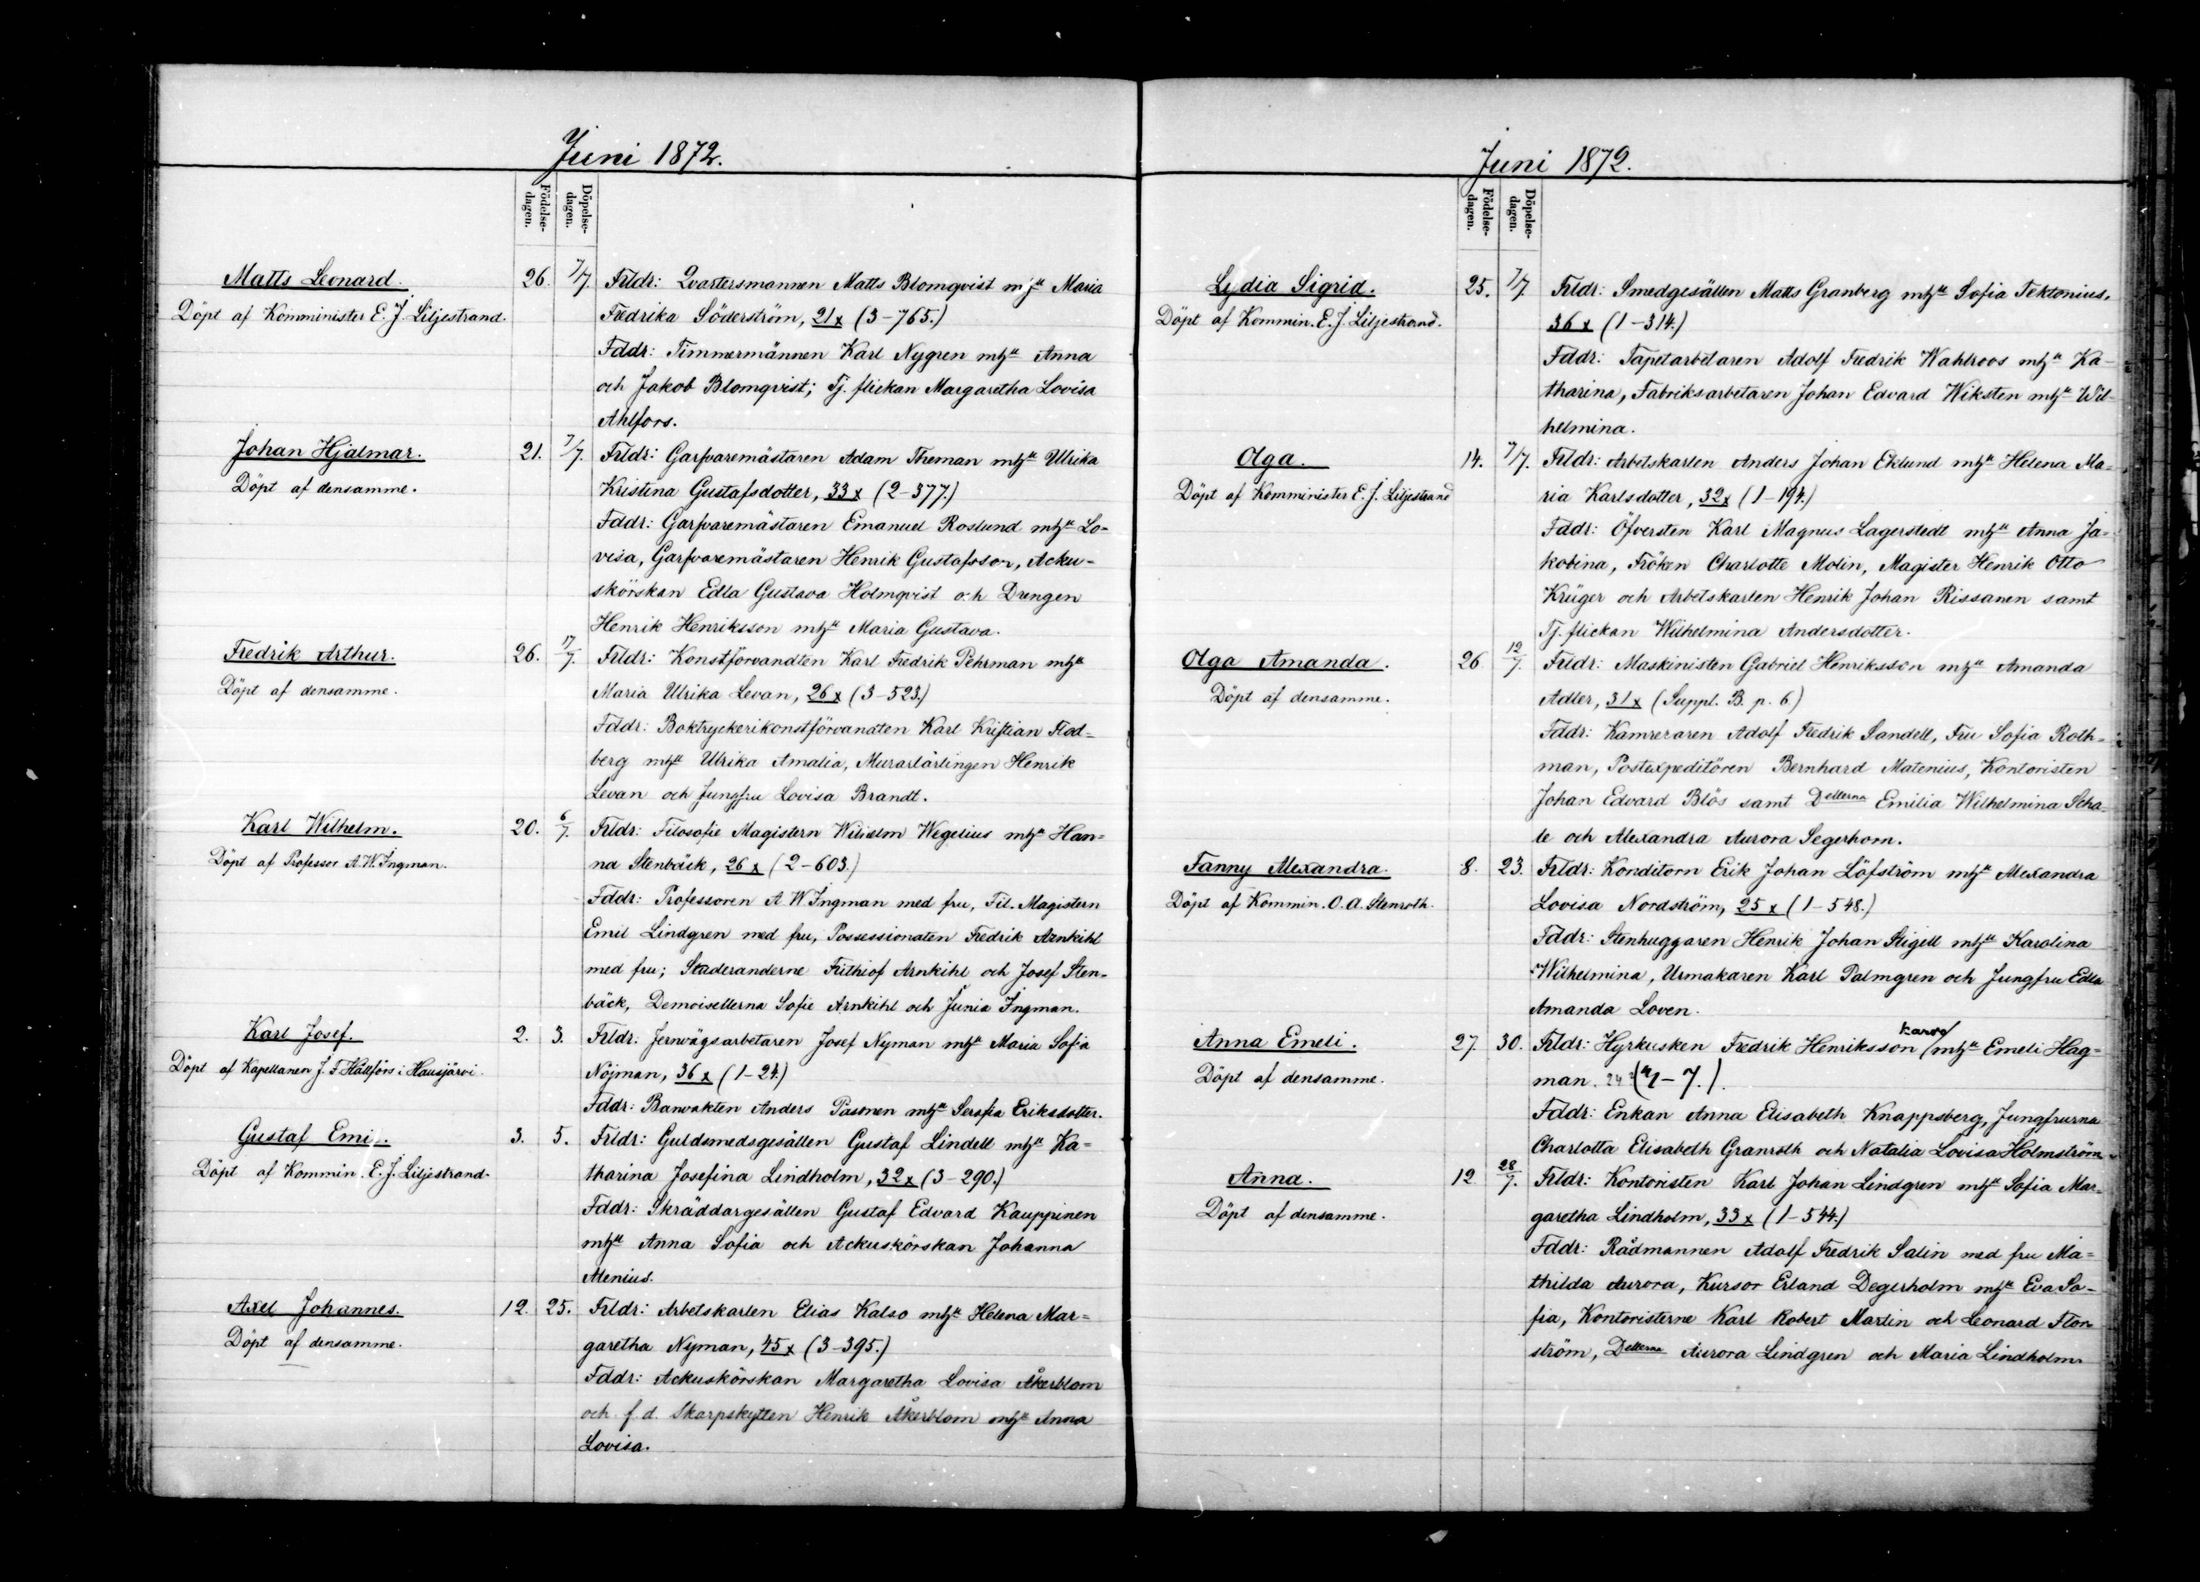 Juni 1872.
Födelse-
dagen.
Döpelse-
dagen.
Matts Leonard.
Döpt af Komminister E. J. Liljestrand.
26. 7/7. Frldr: Qvartersmannen Matts Blomqvist mhu Maria
Fredrika Söderström, 21 x (3-765.)
Fddr: Timmermännen Karl Nygren mhu Anna
och Jakob Blomqvist; Tj. flickan Margaretha Lovisa
Ahlfors.
Johan Hjalmar.
Döpt af densamme.
21. 7/7. Frldr: Garfvaremästaren Adam Theman mhu Ulrika
Kristina Gustafsdotter, 33 x (2-377.)
Fddr: Garfvaremästaren Emanuel Roslund mhu Lo-
visa, Garfvaremästaren Henrik Gustafsson, Acku-
skörskan Edla Gustava Holmqvist och Drengen
Henrik Henriksson mhu Maria Gustava.
Fredrik Arthur.
Döpt af densamme.
26. 17/7. Frldr: Konstförvandten Karl Fredrik Pehrman mhu
Maria Ulrika Levan, 26 x (3-523.)
Fddr: Boktryckerikonstförvandten Karl Kristian Flod-
berg mhu Ulrika Amalia, Murarlärlingen Henrik
Levan och Jungfru Lovisa Brandt.
Karl Wilhelm.
Döpt af Professor A. W. Ingman.
20. 6/7. Frldr: Filosofie Magistern Wilhelm Wegelius mhu Han-
na Stenbäck, 26 x (2-603.)
Fddr: Professoren A. W. Ingman med fru, Fil. Magistern
Emil Lindgren med fru, Possessionaten Fredrik Arnkihl
med fru; Studeranderne Frithiof Arnkihl och Josef Sten-
bäck, Demoisellerna Sofie Arnkihl och Junia Ingman.
Karl Josef.
Döpt af Kapellanen J. F. Hållfors i Hausjärvi.
2. 3. Frldr: Jernvägsarbetaren Josef Nyman mhu Maria Sofia
Nöjman, 36 x (1-24.)
Fddr: Banvakten Anders Pasonen mhu Serafia Eriksdotter.
Gustaf Emil.
Döpt af Kommin. E. J. Liljestrand.
3. 5. Frldr: Guldsmedsgesällen Gustaf Lindell mhu Ka-
tharina Josefina Lindholm, 32 x (3-290.)
Fddr: Skräddargesällen Gustaf Edvard Kauppinen
mhu Anna Sofia och Ackuskörskan Johanna
Menius.
Axel Johannes.
Döpt af densamme.
12. 25. Frldr: Arbetskarlen Elias Kalso mhu Helena Mar-
garetha Nyman, 45 x (3-395.)
Fddr: Ackuskörskan Margaretha Lovisa Åkerblom
och f. d. Skarpskytten Henrik Åkerblom mhu Anna
Lovisa.
Juni 1872.
Födelse-
dagen.
Döpelse-
dagen.
Lydia Sigrid.
Döpt af Kommin. E. J. Liljestrand.
25. 7/7. Frldr: Smedgesällen Matts Granberg mhu Sofia Tektonius,
36 x (1-314.)
Fddr: Tapetarbetaren Adolf Fredrik Wahlroos mhu Ka-
tharina, Fabriksarbetaren Johan Edvard Wiksten mhu Wil-
helmina.
Olga.
Döpt af Komminister E. J. Liljestrand
14. 7/7. Frldr: Arbetskarlen Anders Johan Eklund mhu Helena Ma-
ria Karlsdotter, 32 x (1-194.)
Fddr: Öfversten Karl Magnus Lagerstedt mhu Anna Ja-
kobina, Fröken Charlotte Molin, Magister Henrik Otto
Krüger och Arbetskarlen Henrik Johan Rissanen samt
Tj. flickan Wilhelmina Andersdotter.
Olga Amanda.
Döpt af densamme.
26 12/7. Frldr: Maskinisten Gabriel Henriksson mhu Amanda
Adler, 31 x (Suppl. B. p. 6)
Fddr: Kamreraren Adolf Fredrik Sandell, Fru Sofia Roth-
man, Postexpeditören Bernhard Matenius, Kontoristen
Johan Edvard Blös samt Dellerna Emilia Wilhelmina Scha-
le och Alexandra Aurora Segerhom.
Fanny Alexandra.
Döpt af Kommin. O. A. Stenroth.
8. 23. Frldr: Konditorn Erik Johan Löfström mhu Alexandra
Lovisa Nordström, 25 x (1-548.)
Fddr: Stenhuggaren Henrik Johan Stigell mhu Karolina
Wilhelmina, Urmakaren Karl Palmgren och Jungfru Edla
Amanda Loven.
Anna Emeli.
Döpt af densamme.
27. 30. Frldr: Hyrkusken Fredrik Henriksson mhu Emeli Hag-
man. 24
Fddr: Enkan Anna Elisabeth Knappsberg, Jungfrurna
Charlotta Elisabeth Granroth och Natalia Lovisa Holmström.
Anna.
Döpt af densamme.
12 28/7. Frldr: Kontoristen Karl Johan Lindgren mhu Sofia Mar-
garetha Lindholm, 33 x (1-544.)
Fddr: Rådmannen Adolf Fredrik Salin med fru Ma-
thilda Aurora, Kursor Erland Degerholm mhu Eva So-
fia, Kontoristerne Karl Robert Martin och Leonard Flor
ström, Dellerna Aurora Lindgren och Maria Lindholm